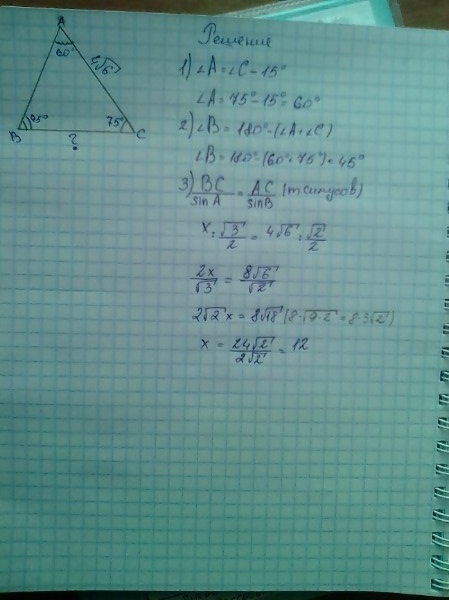 A
60°
4√6
B
45°
75°
C
?
Решение
1) ∠A = ∠C - 15°
∠A = 75° - 15° = 60°
2) ∠B = 180° - (∠A + ∠C)
∠B = 180° - (60° + 75°) = 45°
3) BC/sin A = AC/sin B (т синусов)
x : √3/2 = 4√6 : √2/2
2x/√3 = 8√6/√2
2√2 x = 8√18 (8·√9·2 = 8·3√2)
x = 24√2/2√2 = 12